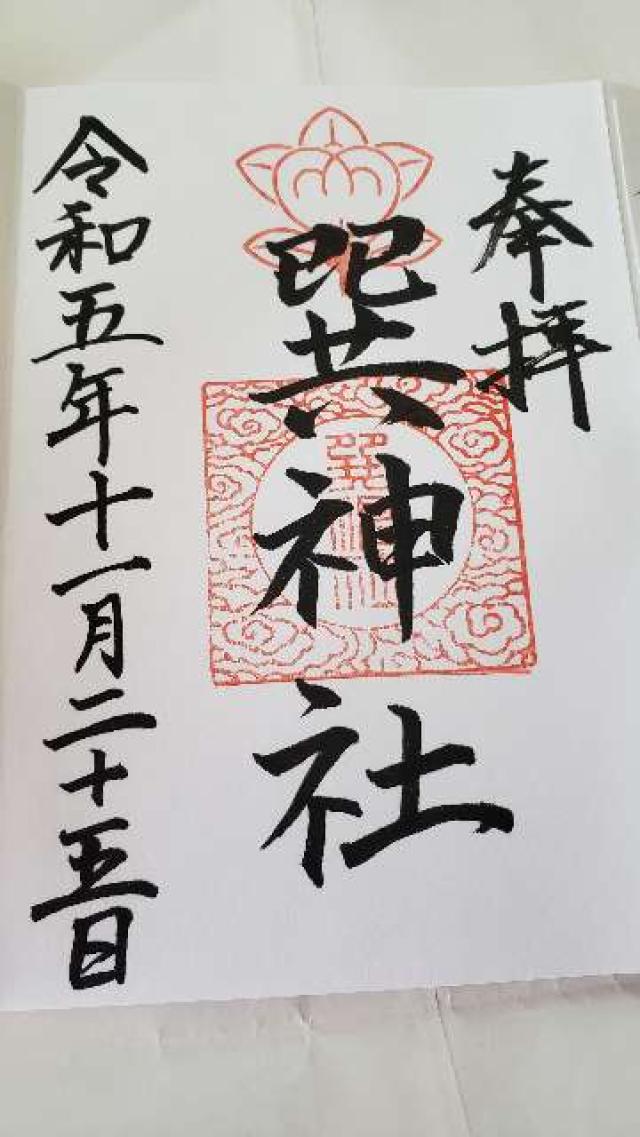 奉拝
巽神社
令和五年十一月二十五日